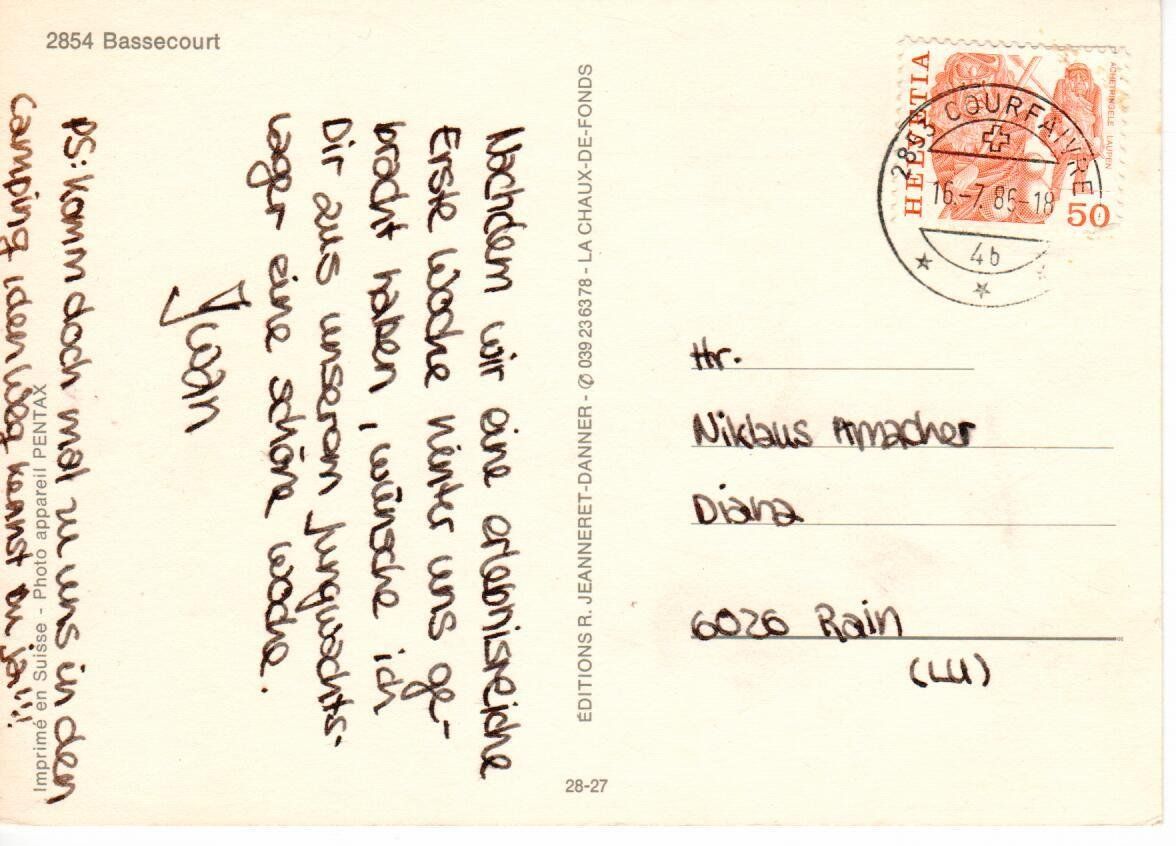 2854 Bassecourt
Nachdem wir eine erlebnisreiche
Erste Woche hinter uns ge-
bracht haben, wünsche ich
Dir aus unserem Jungwachts-
lager eine schöne woche.
Ywan
PS: komm doch mal zu uns in den
camping den Weg kennst du ja!!!
Imprimé en Suisse - Photo appareil PENTAX
ÉDITIONS R. JEANNERET-DANNER - ✆ 039 23 63 78 - LA CHAUX-DE-FONDS
28-27
HELVETIA
ACHETRINGELE LAUPEN
50
COURFAIVRE
16.-7.86-18
4b
Hr.
Niklaus Amacher
Diana
6026 Rain
(LU)